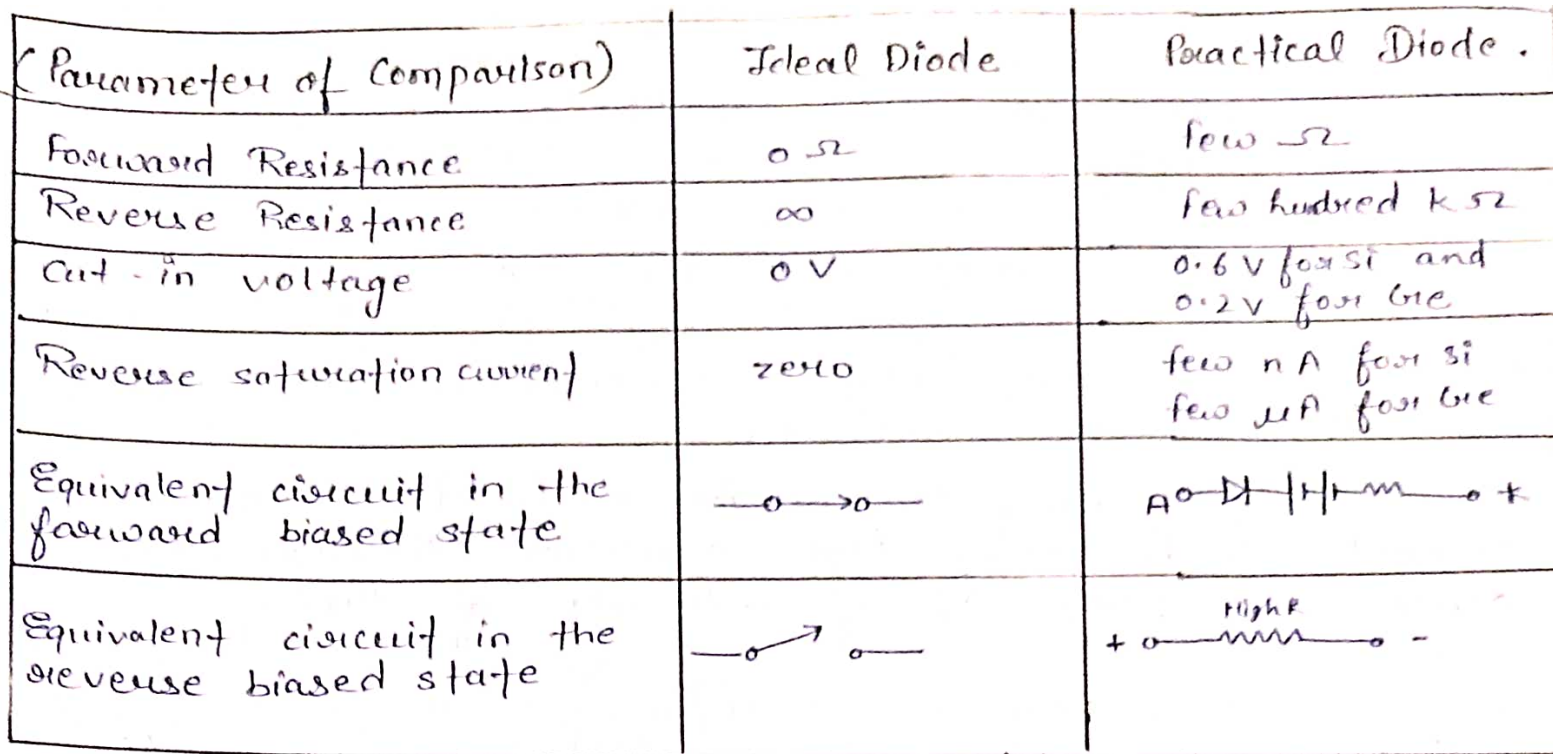 (Parameter of Comparison) Ideal Diode Practical Diode.
Forward Resistance 0 Ω few Ω
Reverse Resistance ∞ few hundred k Ω
Cut-in voltage 0 V 0.6 V for si and
0.2 V for Ge
Reverse saturation current zero few n A for si
few μA for Ge
Equivalent circuit in the
forward biased state
A K
Equivalent circuit in the
reverse biased state
High R
+ -